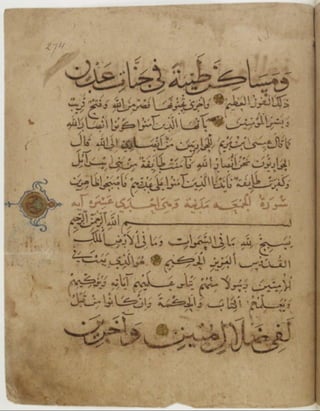 274
ومساكن طيبة في جنات عدن
ذلك الفوز العظيم وأخرى تحبونها نصر من الله وفتح قريب
وبشر المؤمنين يا أيها الذين آمنوا كونوا أنصار الله
كما قال عيسى بن مريم للحواريين من أنصاري إلى الله قال
الحواريون نحن أنصار الله فآمنت طائفة من بني إسرائيل
وكفرت طائفة فأيدنا الذين آمنوا على عدوهم فأصبحوا ظاهرين
سورة الجمعة مدنية وهي إحدى عشرة آية
بسم الله الرحمن الرحيم
يسبح لله ما في السموات وما في الأرض الملك
القدوس العزيز الحكيم هو الذي بعث في
الأميين رسولا منهم يتلو عليهم آياته ويزكيهم
ويعلمهم الكتاب والحكمة وإن كانوا من قبل
لفي ضلال مبين وآخرين